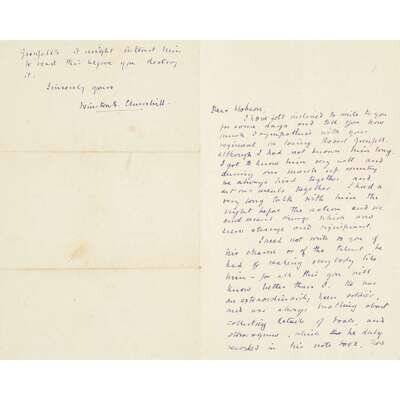 Grenfell's it might interest him
to read this before you destroy
it.
Sincerely yours
Winston S. Churchill.
Dear Hobson.
I have felt inclined to write to you
for some days and tell you how
much I sympathise with your
regiment in losing Robert Grenfell.
Although I had not known him long
I got to know him very well and
during our march up country
we always lived together and
ate our meals together. I had a
very long talk with him the
night before the action and we
said many things which now
seem strange and significant.
I need not write to you of
his charm or of the talent he
had of making everybody like
him - for all this you will
know better than I. He was
an extraordinarily keen soldier
and was always bothering about
collecting details of roads, and
other features, which he duly
recorded in his note book.